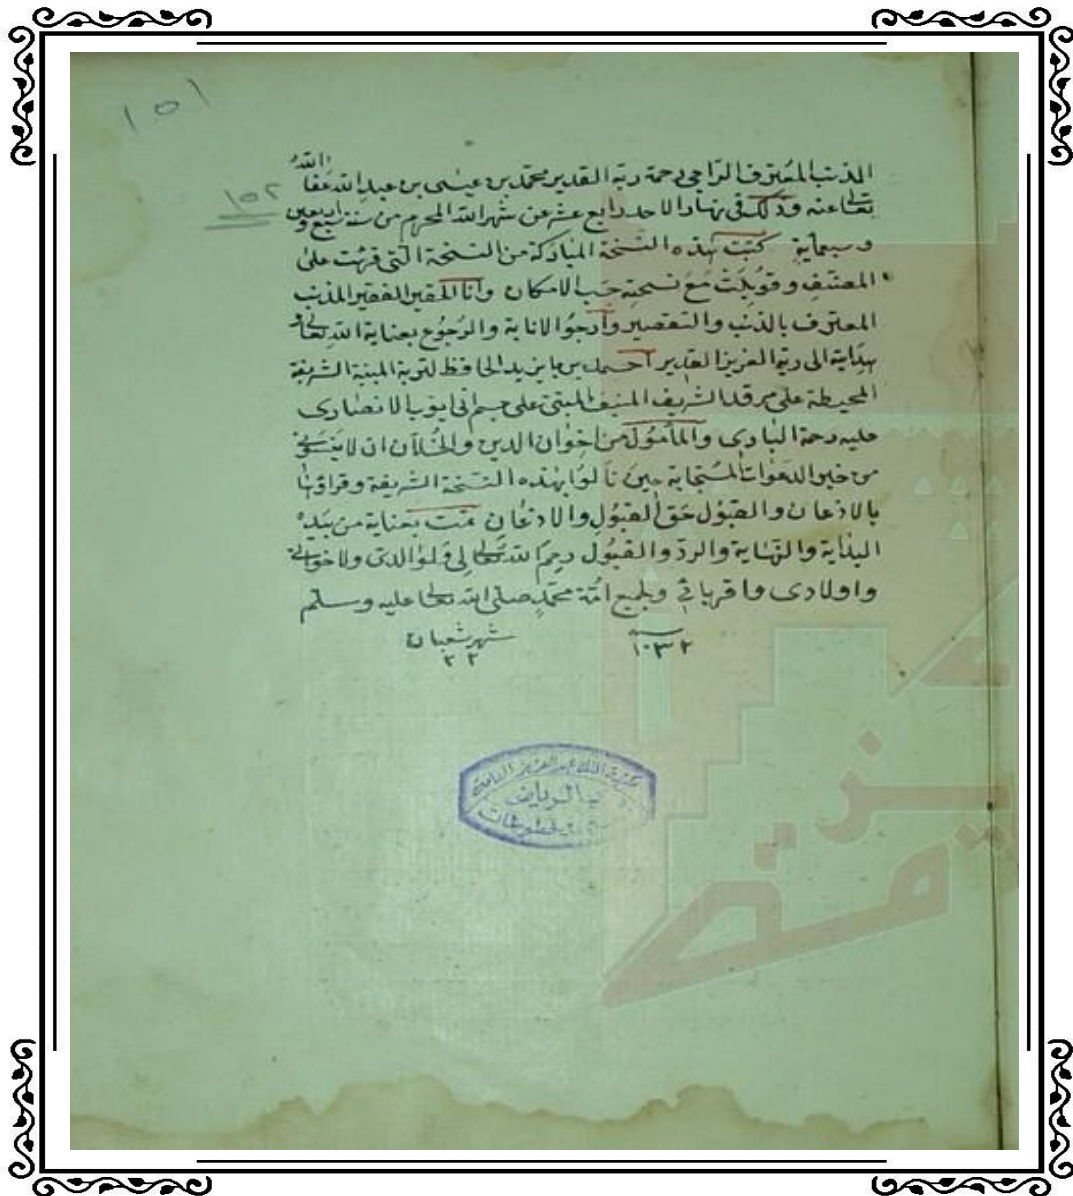 ١٥١
١٥٢
المذنب المعترف الراجي رحمة ربه القدير محمد بن عيسى بن عبد الله عفا الله
تعالى عنه وذلك في نهار الاحد رابع عشر من شهر الله المحرم من سنة اربعين
وسبعماية كتبت هذه النسخة المباركة من النسخة التي قرئت على
المصنف وقوبلت مع نسخته حسب الامكان وانا الحقير الفقير المذنب
المعترف بالذنب والتقصير وارجو الانابة والرجوع بعناية الله تعالى و
هدايته الى ربه العزيز القدير احمد بن بايزيد الحافظ لتربة المبنية الشريفة
المحيطة على مرقد الشريف المنيف المبني على جسم ابي ايوب الانصاري
عليه رحمة الباري والمأمول من اخوان الدين والخلان ان لا ينسوني
من خير الدعوات المستجابة حين نالوا بهذه النسخة الشريفة وقراؤتها
بالاذعان والقبول حق القبول والاذعان تمت بعناية من بيده
البداية والنهاية والرد والقبول رحم الله تعالى لي ولوالدي ولاخواني
واولادي واقربائي وبجميع امة محمد صلى الله تعالى عليه وسلم
سنة ١٠٣٢ شهر شعبان ٢٢
مكتبة الملك عبد العزيز العامة
بالرياض
المخطوطات